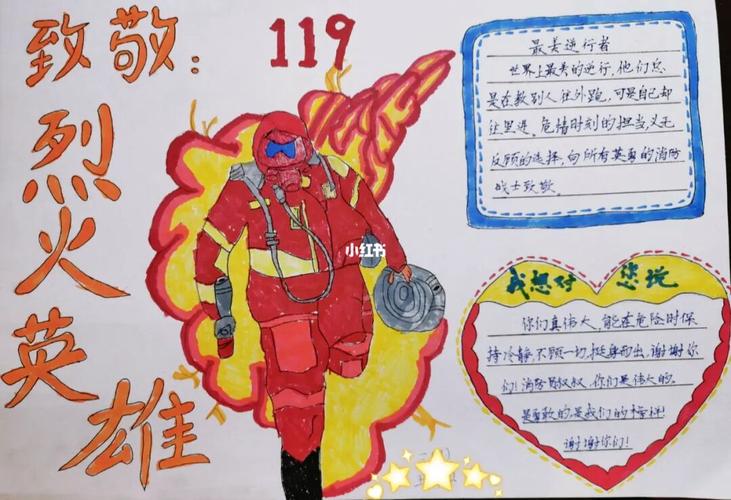 致敬:
119
烈火英雄
小红书
最美逆行者
世界上最美的逆行,他们总
是在救别人往外跑,可是自己却
往里进。危情时刻的担当,义无
反顾的选择,向所有英勇的消防
战士致敬。
我想对 您说
你们真伟大,能在危险时保
持冷静,不顾一切,挺身而出,谢谢你
们!消防员叔叔,你们是伟大的。
是勇敢的,是我们的榜样!
谢谢你们!